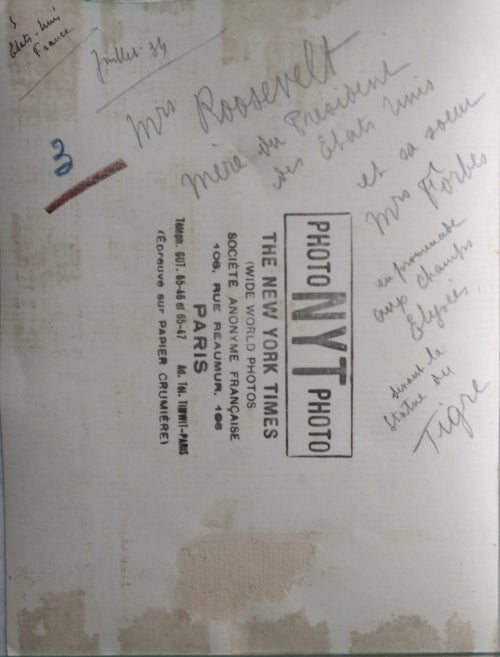 États-Unis
France
Juillet 34
Mrs Roosevelt
mère du Président
des États Unis
et sa soeur
Mrs Forbes
en promenade
aux champs
Elysées.
devant la
statue du
Tigre
PHOTO NYT PHOTO
THE NEW YORK TIMES
(WIDE WORLD PHOTOS)
SOCIÉTÉ ANONYME FRANÇAISE
106, RUE RÉAUMUR, 106
PARIS
Téléph. GUT. 65-46 et 65-47 Ad. Tél. TIMWIT-PARIS
(Épreuve sur PAPIER CRUMIÈRE)